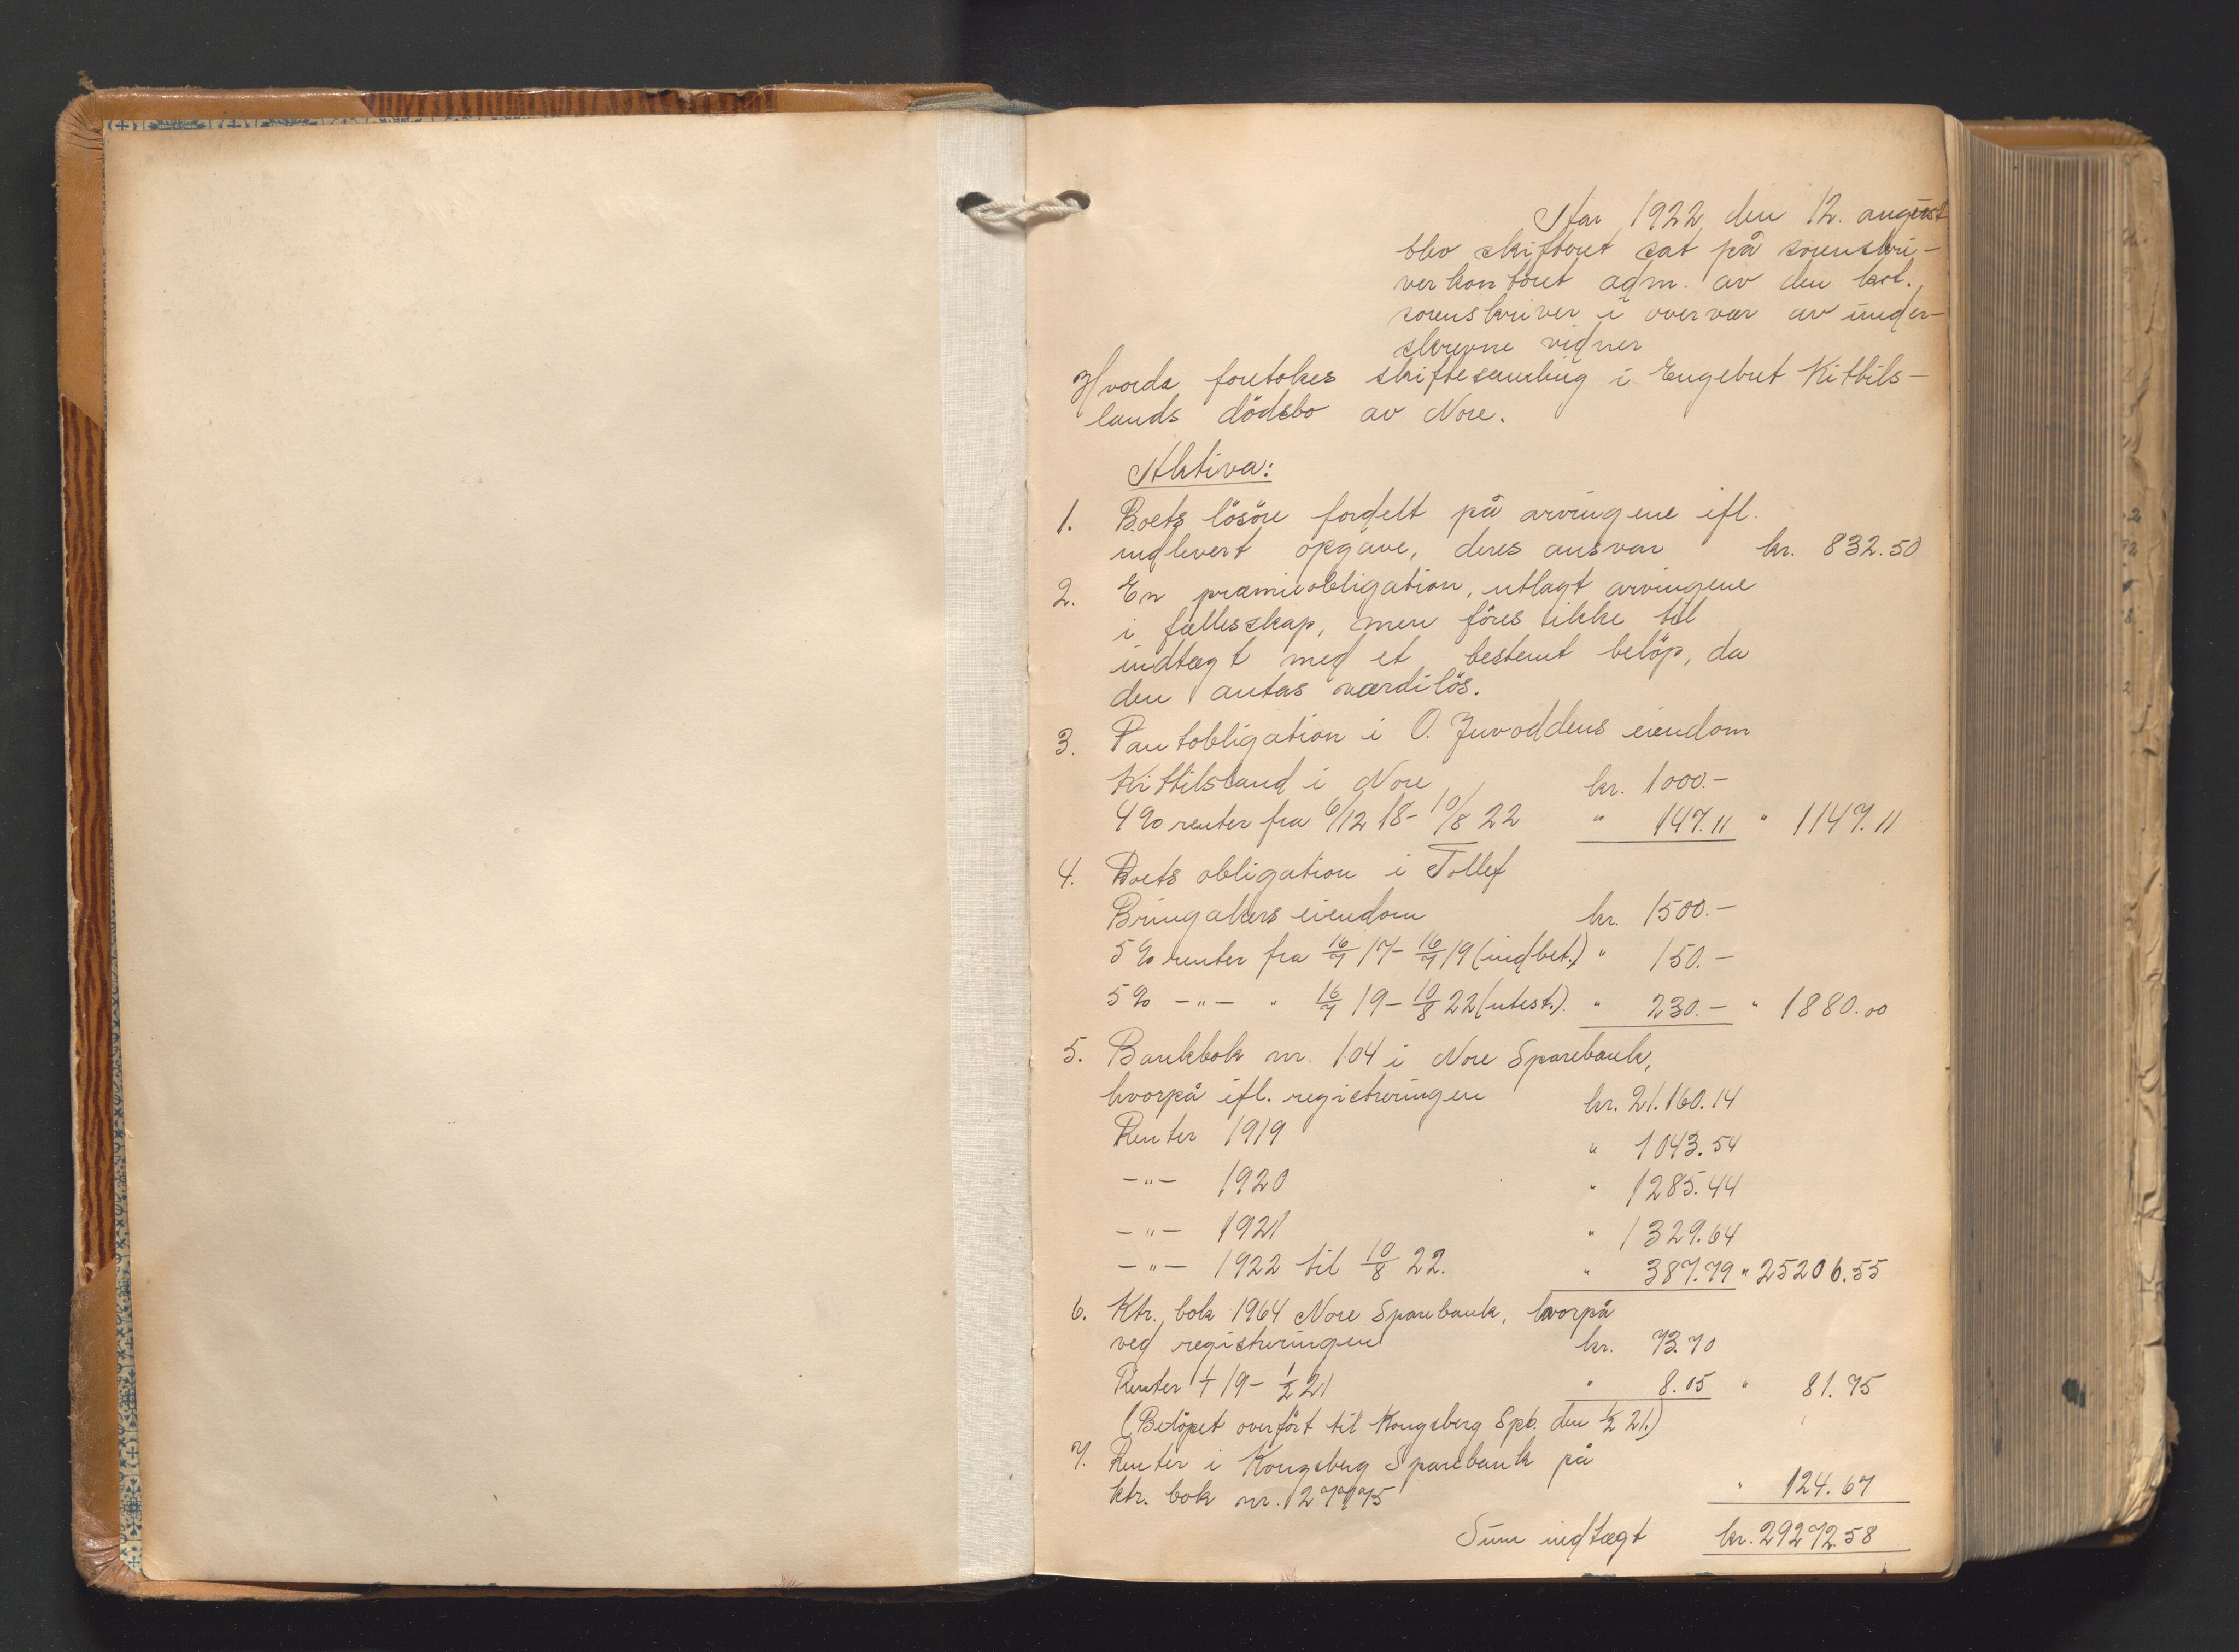 Aar 1922 den 12. august
blev skifteret sat på sorenskri-
verkontoret adm. av den kst.
sorenskriver i overvær av under-
skrevne vidner
Hvorda foretokes skiftesamling i Engebret Kittils-
lands dödsbo av Nore.
Aktiva:
1. Boets lösöre fordelt på arvingene ifl.
indlevert opgave, deres ansvar kr. 832.50
2. En præmieobligation, utlagt arvingene
i fællesskap, men föres ikke til
indtægt med et bestemt belöp, da
den antas værdilös.
3. Pantobligation i O. Juvoddens eiendom
Kittilsland i Nore kr. 1000.-
4% renter fra 6/12 18 - 10/8 22 " 147.11 " 1147.11
4. Boets obligation i Tollef
Bringakers eiendom kr. 1500.-
5% renter fra 16/7 17 - 16/7 19 (indbet.) " 150.-
5% -"- " 16/7 19 - 10/8 22 (utest.). " 230.- " 1880.00
5. Bankbok nr. 104 i Nore Sparebank,
hvorpå ifl. registreringen kr. 21.160.14
Renter 1919 " 1043.54
-"- 1920 " 1285.44
-"- 1921 " 1329.64
-"- 1922 til 10/8 22. " 387.79 " 25206.55
6. Ktr. bok 1964 Nore Sparebank, hvorpå
ved registreringen kr. 73.70
Renter 1/1 19 - 1/2 21 " 8.05 " 81.75
(Belöpet overfört til Kongsberg Spb. den 1/2 21.)
7. Renter i Kongsberg Sparebank på
ktr. bok nr. 27775 " 124.67
Sum indtægt kr. 29272.58